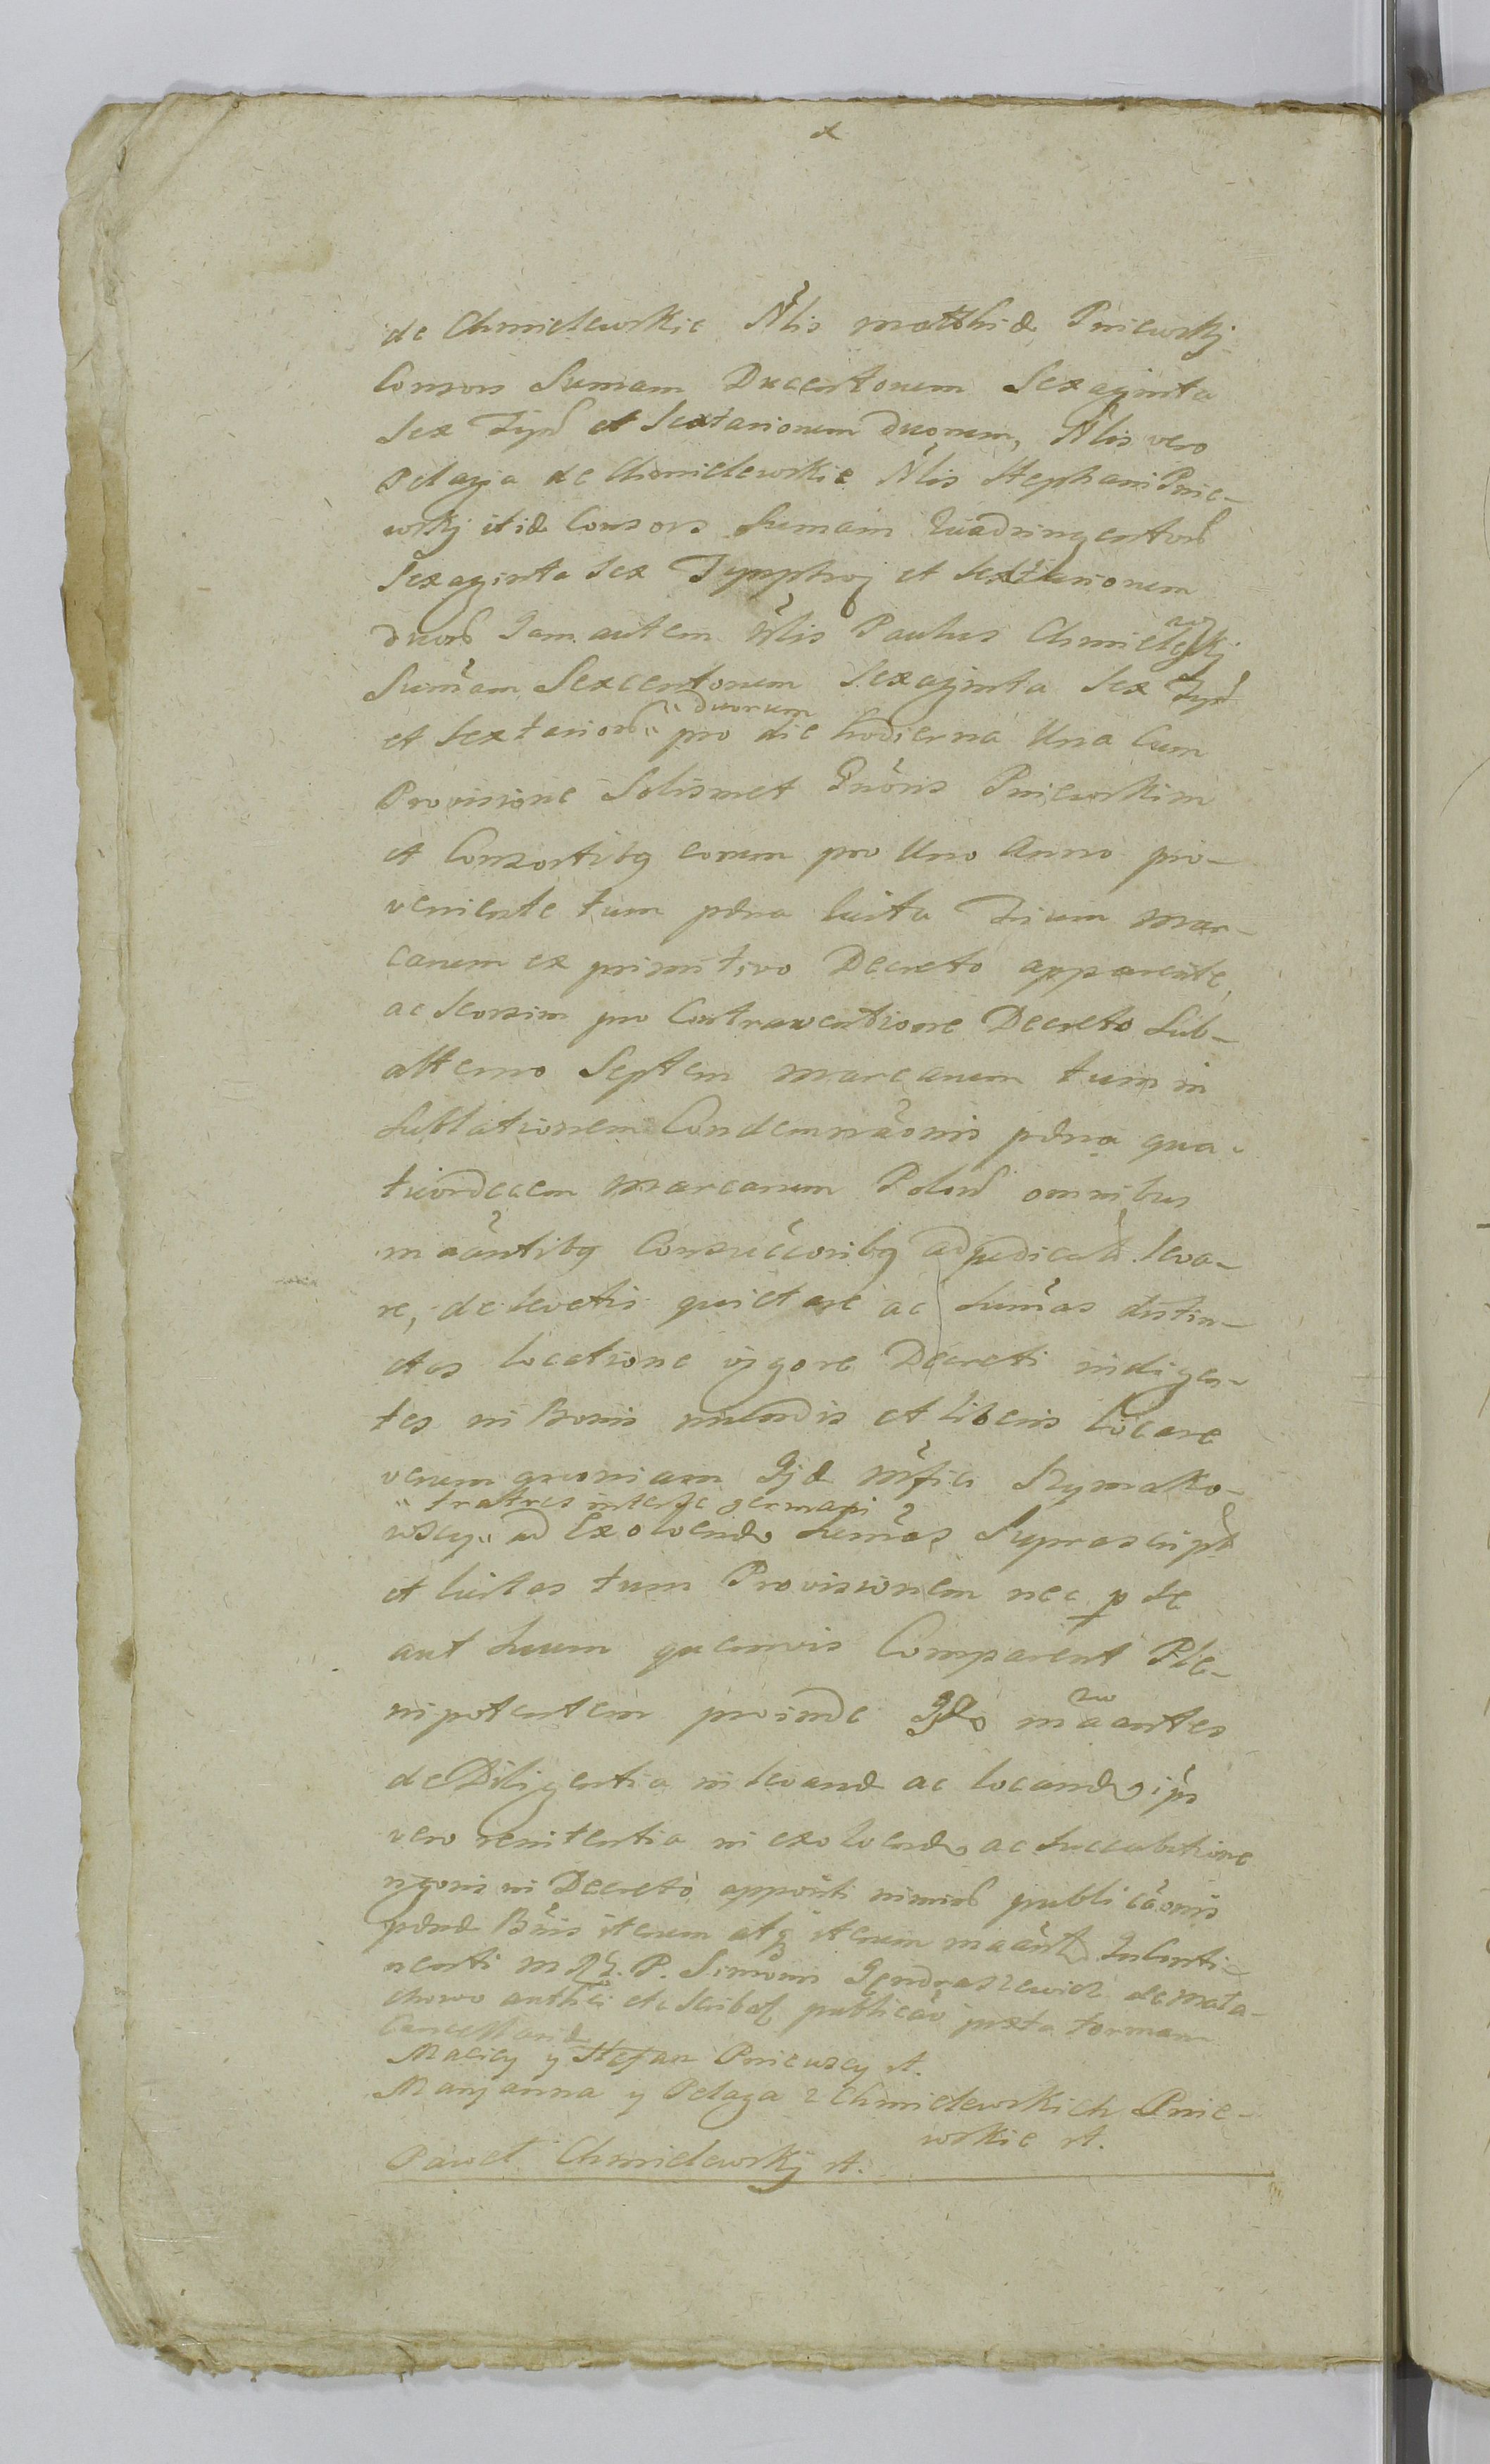 de Chmielewskie Nlis matthiæ Pniewskj
Consors Sumam Ducentorum Sexaginta
Sex Tyn et Sextariorum duorum, Nlis vero
Pelagia de Chmielewskie Nlis Stephani Pnie-
wskj itid Consors Sumam Quadringentor
Sexaginta Sex Tynphor et Sextariorum
duor Jam autem Nlis Paulus Chmielewskj
Sumam Sexcentorum Sexaginta Sex Tyn
et Sextarior " duorum " pro die hodierna Una Cum
Provisione Solismet Gnoris Pniewskim
et Consortibq eorum pro Uno Anno pro-
veniente tum pæna luita Trium Mar-
carum ex primitivo Decreto apparente,
ac Seorsim pro Contraventione Decreto Sub-
alterno Septem Marcarum tum in
Sublationem Condemnaonis pæna qua-
tuordecem Marcarum Polon omnibus
maantibq Consuccoribq adjudicata leva-
re, de levatis quietare ac Sumas distin-
ctas locatione vigore Decreti indigen-
tes in Bonis mundis et liberis locare
verum quoniam Mfici Szymako-
wscy " fratres inter se germani " ad Exolvend Sumas Suprascript
et luitas tum Provisionem nec p se
aut Suum quemvis Comparent Ple-
nipotentem proinde maantes
de Diligentia in levand ac locand, ips
vero renitentia in exolvend ac Succubitione
rigoris in Decreto appositi nimir publicaonis
pænæ Bnis iterum atq iterum maant
nenti P. Simoni Jendraszewicz de Mata-
chowo publicao juxta formam
Cancellariæ
Maciey y Stefan Pniewscy
Maryanna y Pelaga z Chmielewskich Pnie-
wskie
Paweł Chmielewskj